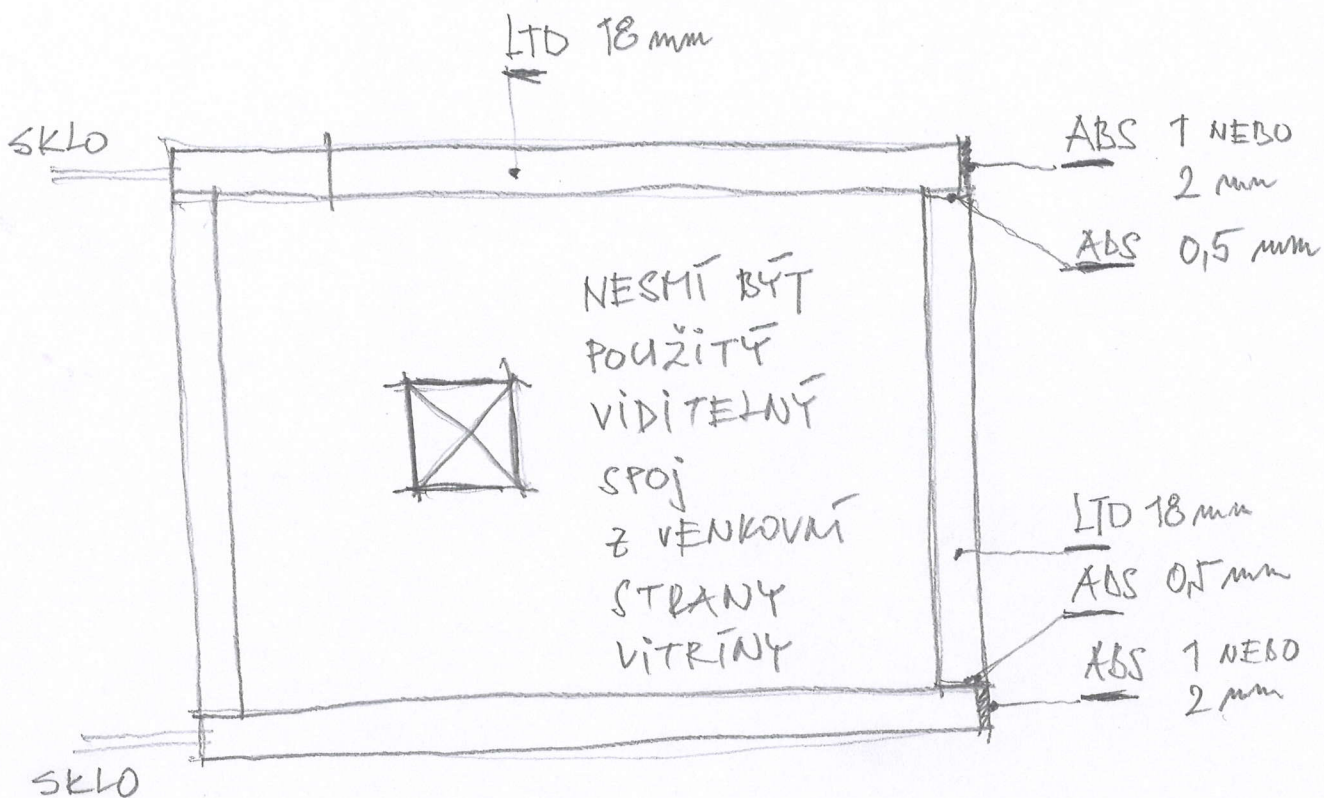 LTD 18 mm
SKLO
ABS 1 NEBO
2 mm
ABS 0,5 mm
NESMÍ BÝT
POUŽITÝ
VIDITELNÝ
SPOJ
Z VENKOVNÍ
STRANY
VITRÍNY
LTD 18 mm
ABS 0,5 mm
ABS 1 NEBO
2 mm
SKLO